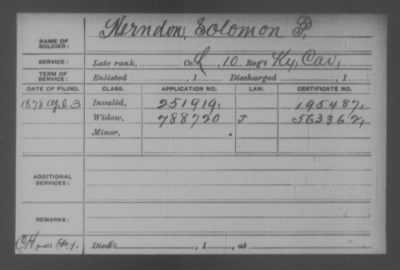 NAME OF SOLDIER: Herndon, Solomon P.
SERVICE: Late rank, Co. 10 Reg't Ky. Cav.,
TERM OF SERVICE: Enlisted , 1 Discharged , 1
DATE OF FILING. CLASS. APPLICATION NO. LAW. CERTIFICATE NO.
1878 3 Invalid, 251919, 195487,
Widow, 788720 J 563362,
Minor,
ADDITIONAL SERVICES:
REMARKS:
Died , 1 , at